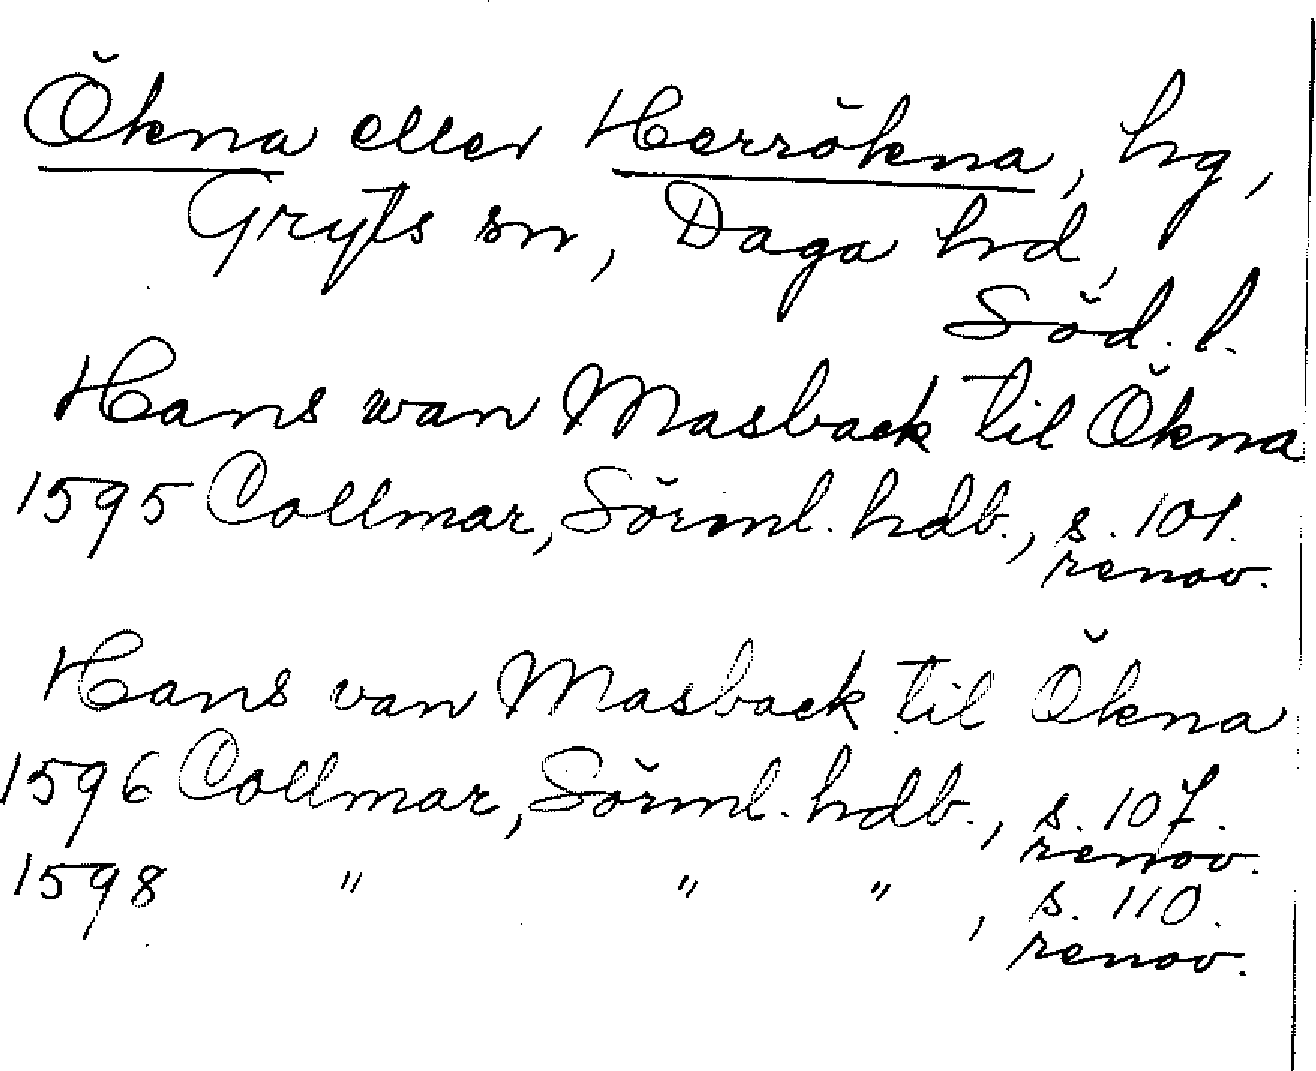 Ökna eller Herrökna, hg,
Gryts sn, Daga hd,
Söd. l.
Hans wan Masback til Ökna
1595 Collmar, Sörml. hdb., s. 101.
renov.
Hans van Masback til Ökna
1596 Collmar, Sörml. hdb., s. 107.
renov.
1598 " " " , s. 110.
renov.